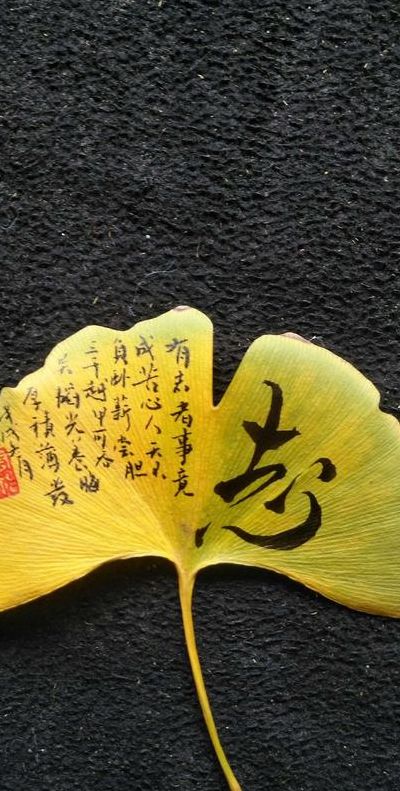 志
有志者事竟
成苦心人天不
負卧薪尝胆
三千越甲可吞
吴韬光养晦
厚積薄發
戊戌六月